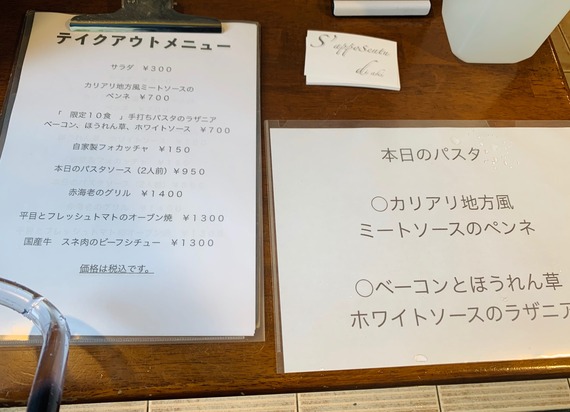 テイクアウトメニュー
サラダ ￥３００
カリアリ地方風ミートソースの
ペンネ ￥７００
「 限定１０食 」手打ちパスタのラザニア
ベーコン、ほうれん草、ホワイトソース ￥７００
自家製フォカッチャ ￥１５０
本日のパスタソース（2人前）￥９５０
赤海老のグリル ￥１４００
平目とフレッシュトマトのオーブン焼 ￥１３００
国産牛 スネ肉のビーフシチュー ￥１３００
価格は税込です。
本日のパスタ
〇カリアリ地方風
ミートソースのペンネ
〇ベーコンとほうれん草
ホワイトソースのラザニア